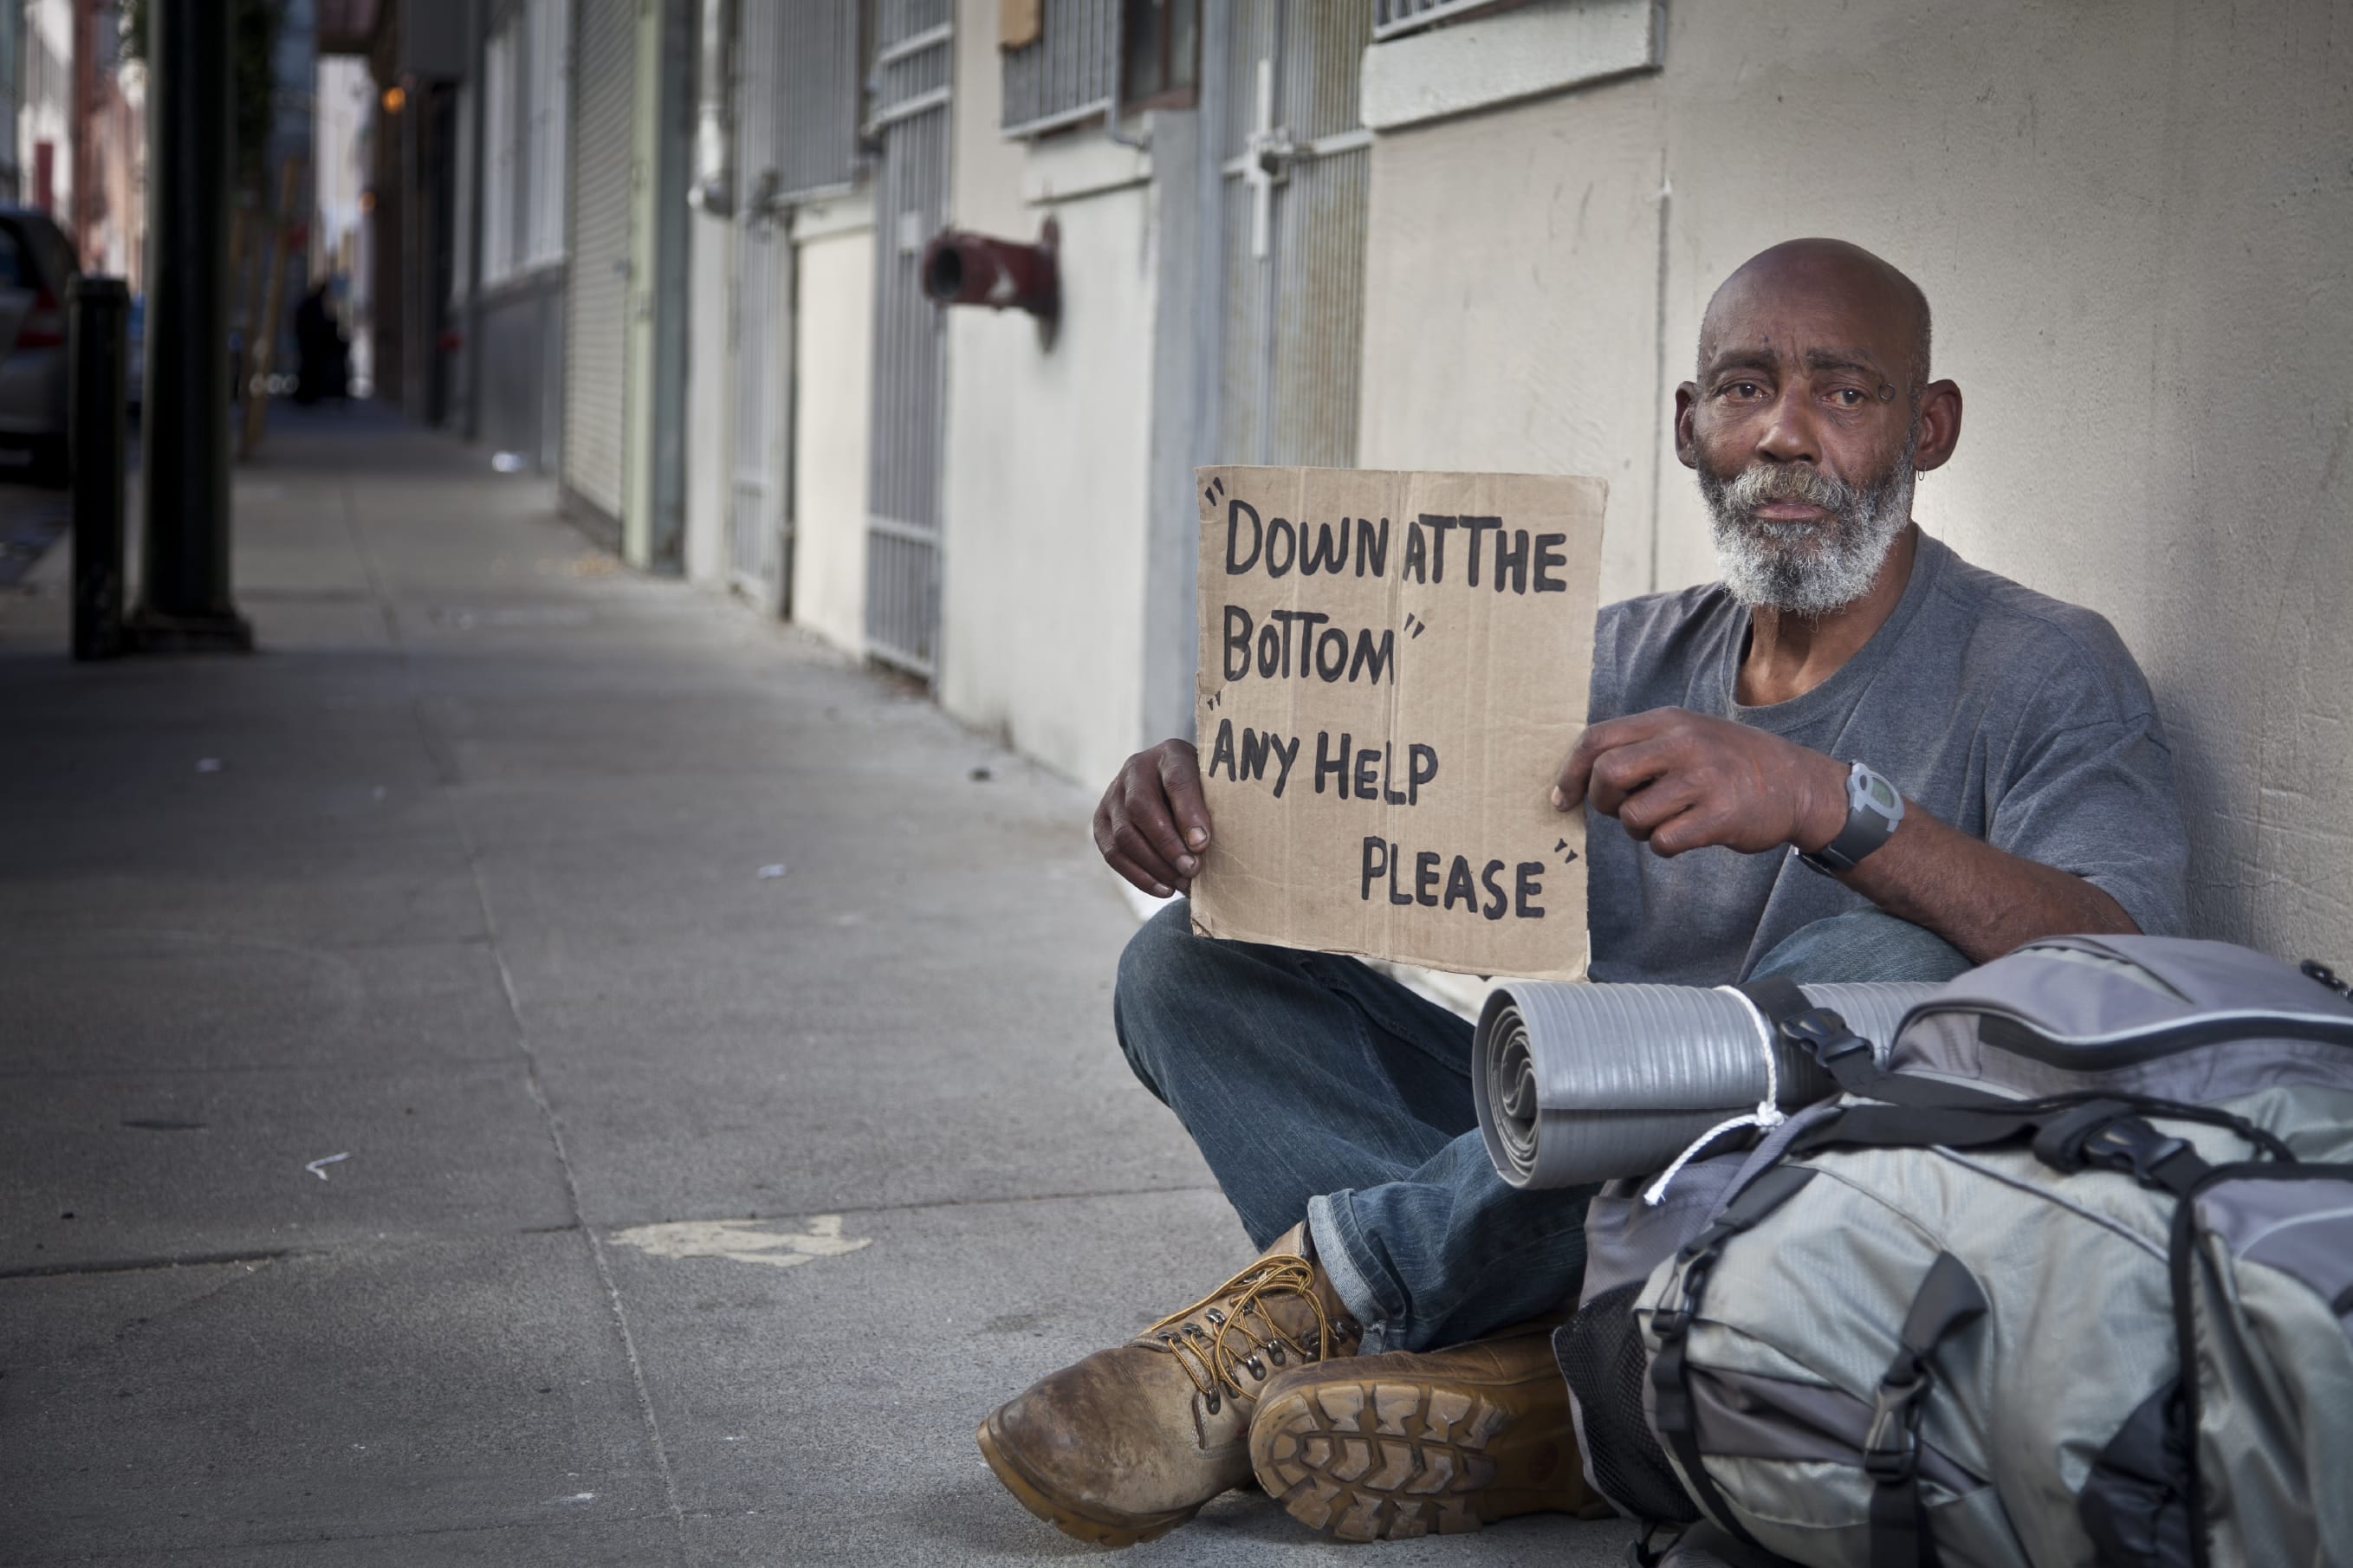 "DOWN AT THE
BOTTOM"
"ANY HELP
PLEASE"